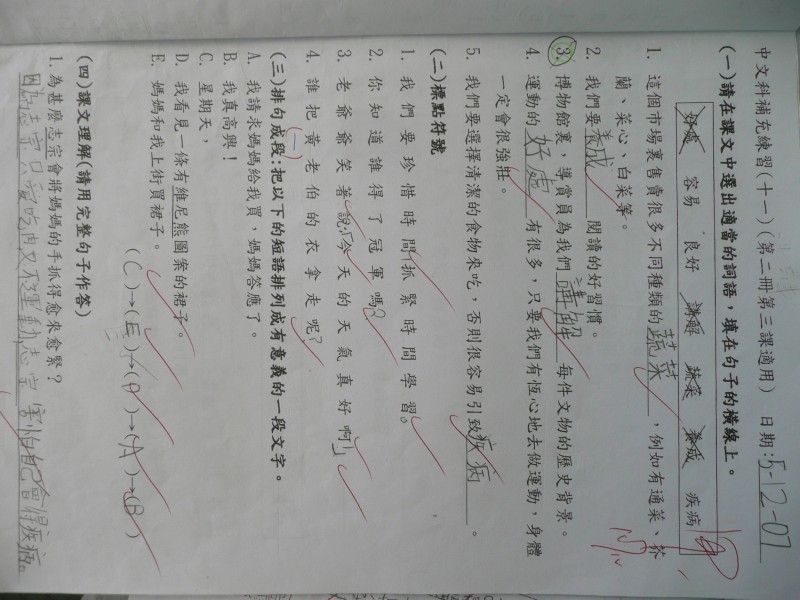 中文科補充練習(十一)(第二冊第三課適用) 日期:5-12-07
(一)請在課文中選出適當的詞語,填在句子的橫線上。
好處 容易 良好 講解 蔬菜 養成 疾病
1. 這個市場裏售賣很多不同種類的蔬菜,例如有通菜、芥
蘭、菜心、白菜等。
2. 我們要養成閱讀的好習慣。
3. 博物館裏,導賞員為我們講解每件文物的歷史背景。
4. 運動的好處有很多,只要我們有恆心地去做運動,身體
一定會很強壯。
5. 我們要選擇清潔的食物來吃,否則很容易引致疾病。
(二)標點符號
1. 我們要珍惜時間,抓緊時間學習。
2. 你知道誰得了冠軍嗎?
3. 老爺爺笑著說:「今天的天氣真好啊!」
4. 誰把黃老伯的衣拿走呢?
(三)排句成段:把以下的短語排列成有意義的一段文字。
A. 我請求媽媽給我買,媽媽答應了。
B. 我真高興!
C. 星期天,
D. 我看見一條有維尼熊圖案的裙子。
E. 媽媽和我上街買裙子。
(C)→(E)→(D)→(A)→(B)
(四)課文理解(請用完整句子作答)
1. 為甚麼志宗會將媽媽的手抓得愈來愈緊?
因為志宗只愛吃肉又不運動,志宗害怕自己會得疾病。